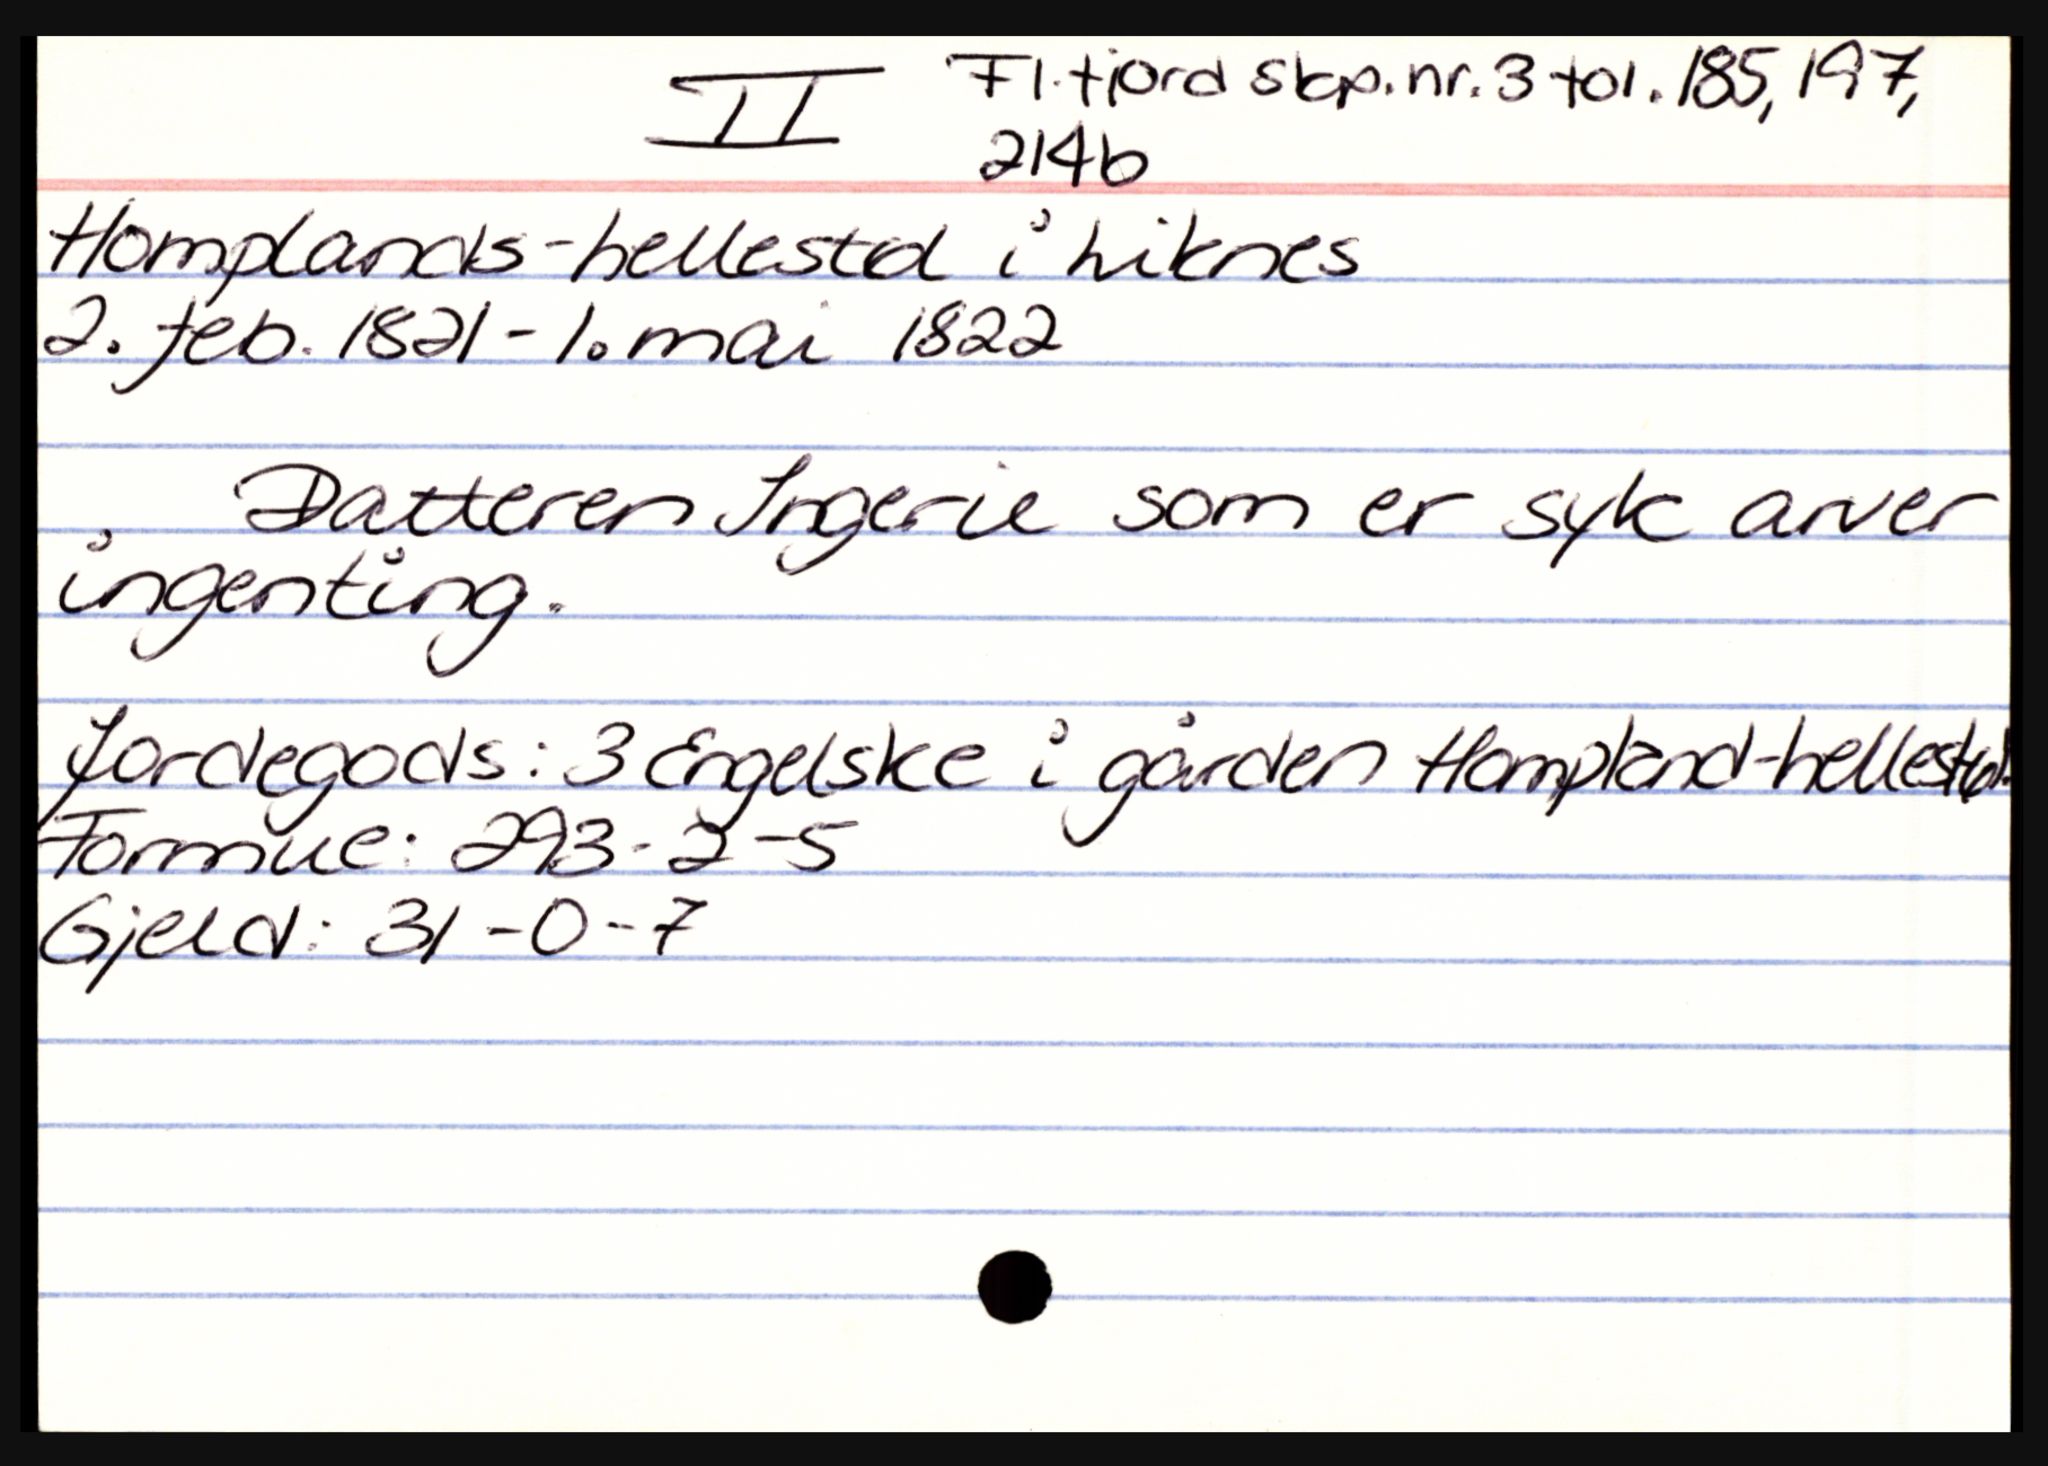 II Fl.fjord skp.nr. 3 fol. 185, 197,
214b
Homplands-hellestøl i Liknes
2. feb. 1821 - 1. mai 1822
Datteren Ingerie som er syk arver
ingenting.
Jordegods: 3 Engelske i gården Hompland-hellestøl.
Formue: 293-2-5
Gjeld: 31-0-7